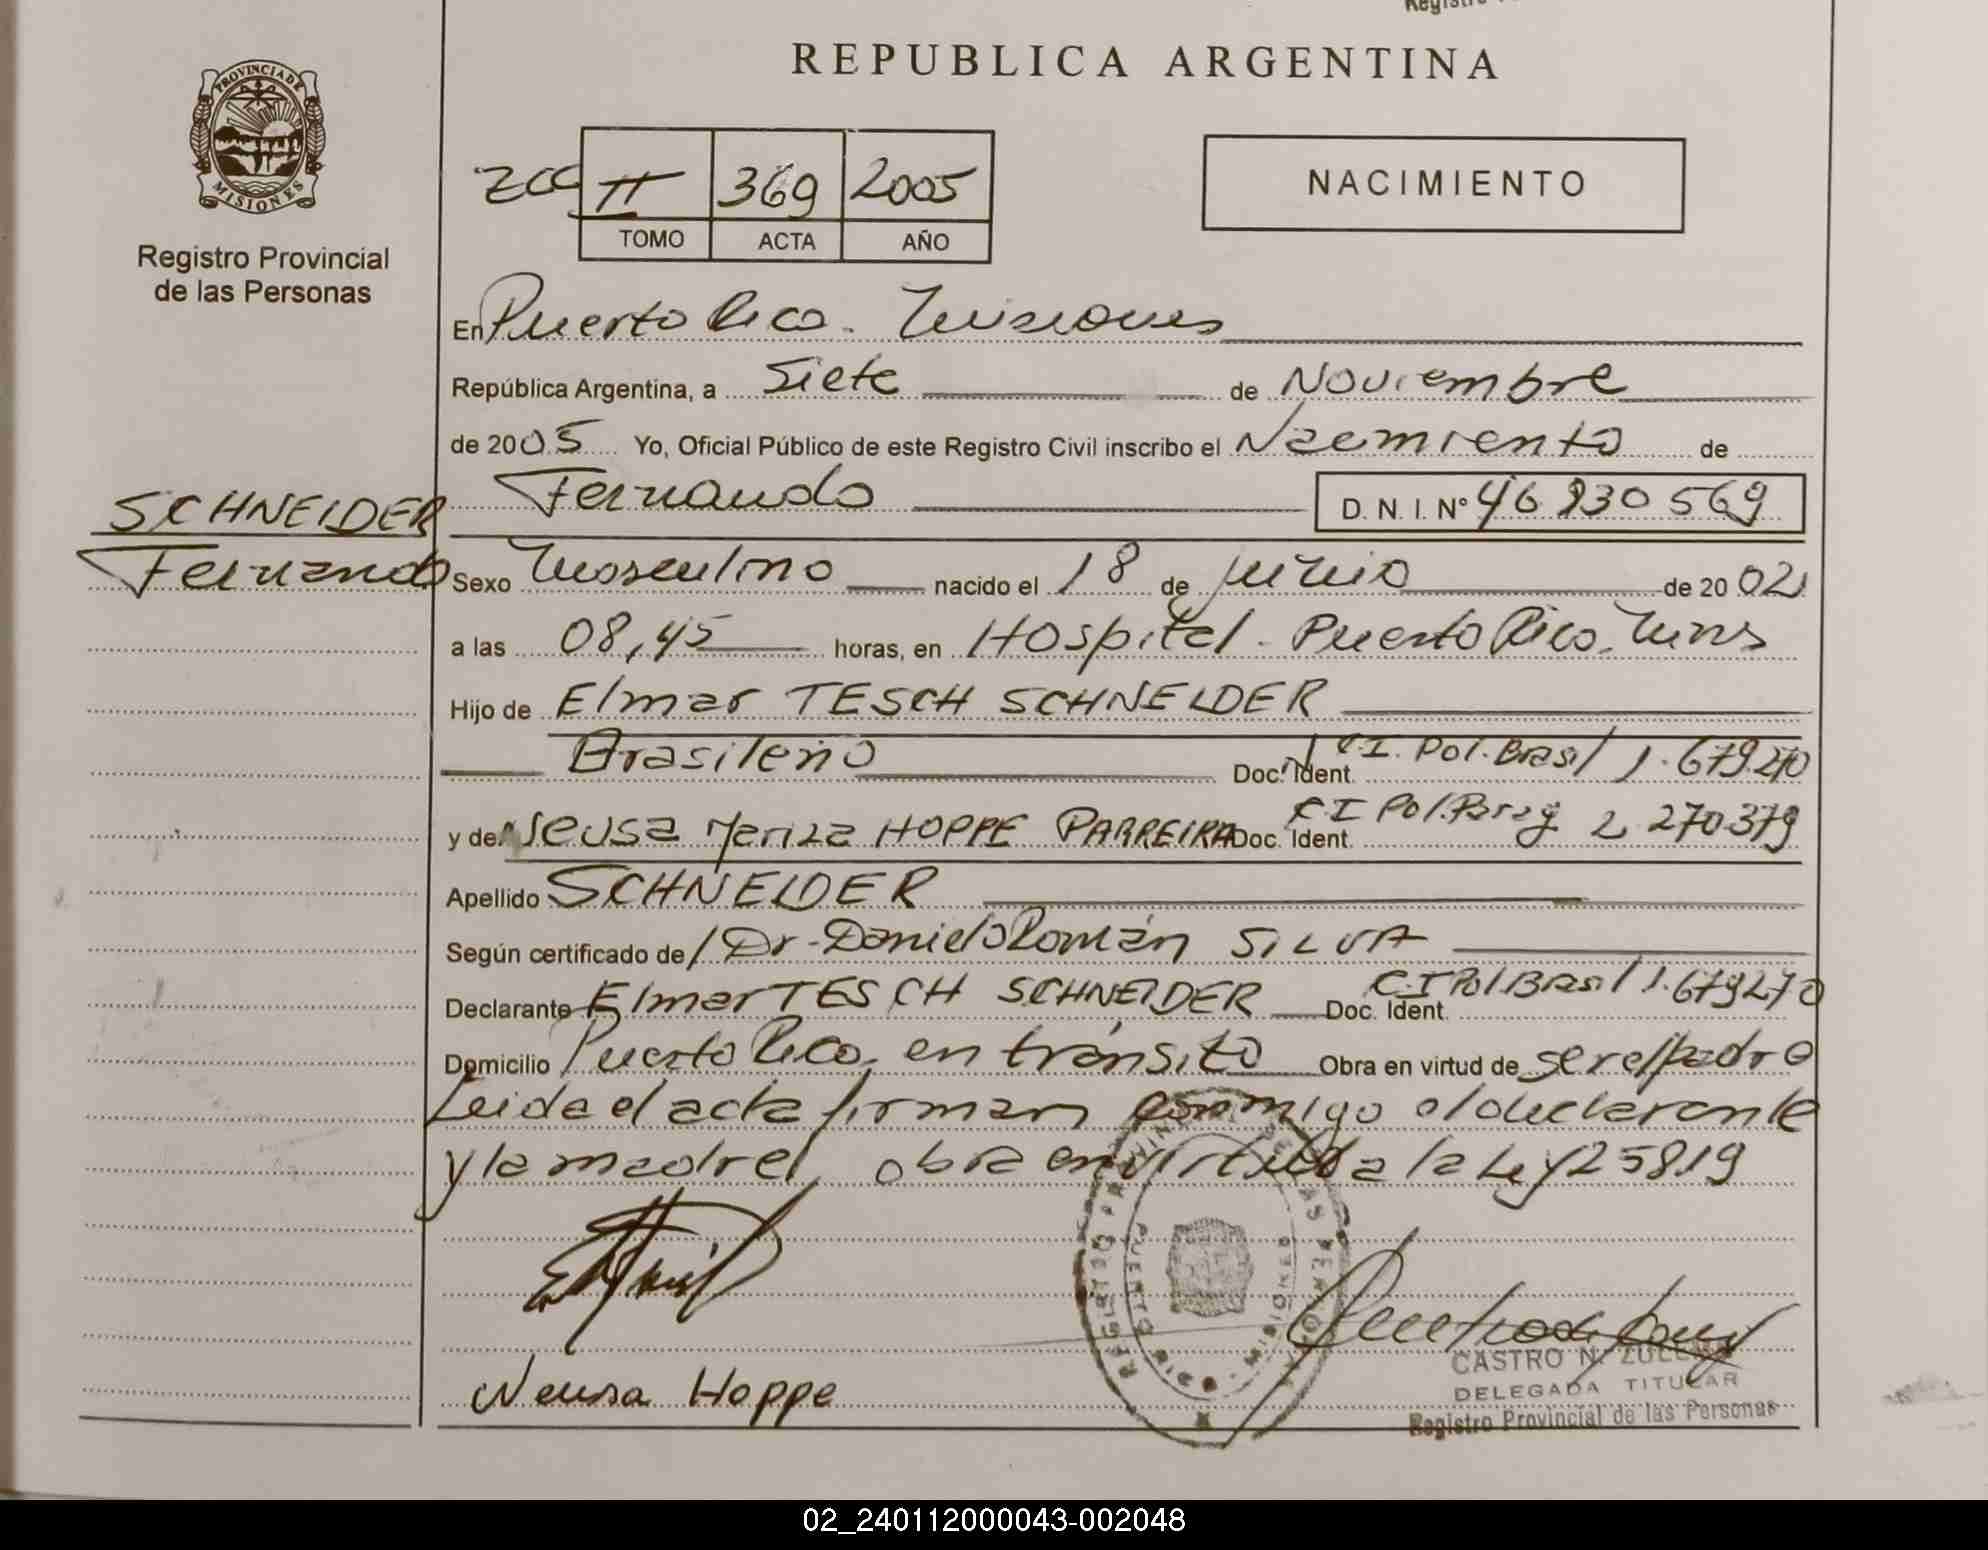 REPUBLICA ARGENTINA
PROVINCIA DE MISIONES
Registro Provincial
de las Personas
II 369 2005
TOMO ACTA AÑO
NACIMIENTO
En Puerto Rico. Misiones
República Argentina, a Siete de Noviembre
de 2005 Yo, Oficial Público de este Registro Civil inscribo el Nacimiento de
SCHNEIDER
Fernando
Fernando D. N. I. Nº 46 930 569
Sexo Masculino nacido el 18 de junio de 2002
a las 08,45 horas, en Hospital - Puerto Rico. Mnes
Hijo de Elmar TESCH SCHNEIDER
Brasileño Doc. Ident. C.I. Pol. Brasil 1.679.270
y de Neusa Mariza HOPPE PARREIRA Doc. Ident. C I Pol. Parag 2 270379
Apellido SCHNEIDER
Según certificado de Dr. Daniel Román SILVA
Declarante Elmar TESCH SCHNEIDER Doc. Ident. C.I Pol. Brasil 1.679270
Domicilio Puerto Rico, en tránsito Obra en virtud de ser el padre
Leida el acta firman conmigo el declarante
y la madre, obra en virtud a la Ley 25819
REGISTRO PROVINCIAL DE LAS PERSONAS
PUERTO RICO - MISIONES
Neusa Hoppe
CASTRO N. ZULEMA
DELEGADA TITULAR
Registro Provincial de las Personas
02_240112000043-002048